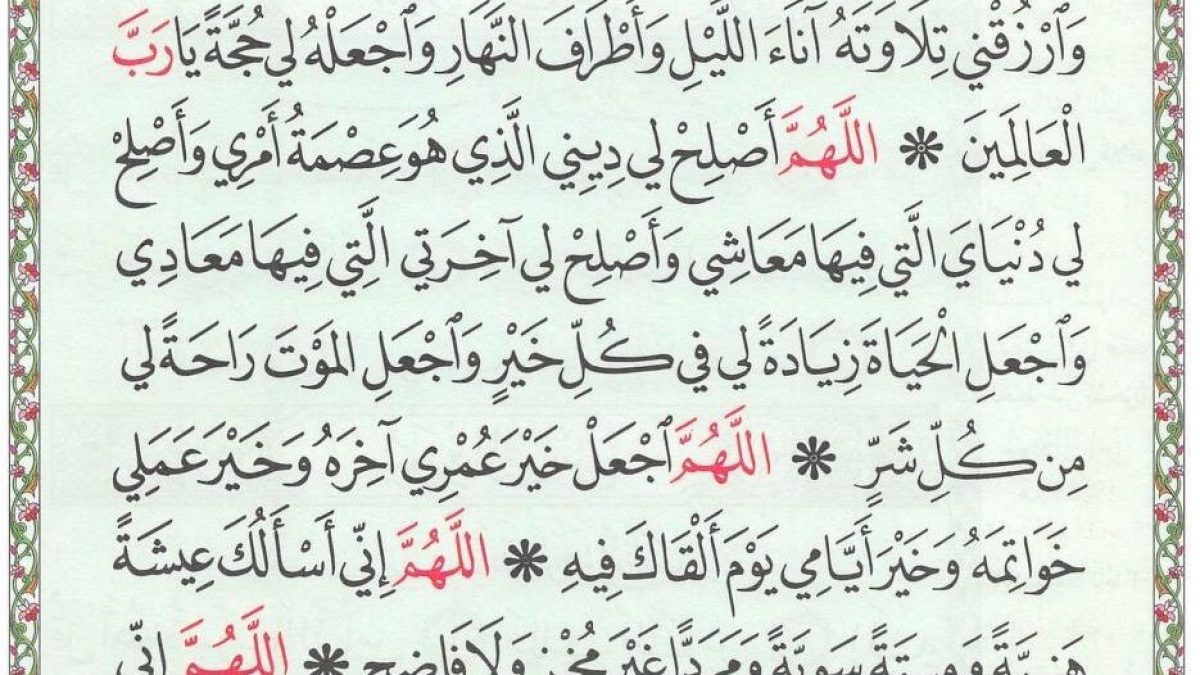 وَٱرْزُقْنِي تِلَاوَتَهُ آنَاءَ اللَّيْلِ وَأَطْرَافَ النَّهَارِ وَٱجْعَلْهُ لِي حُجَّةً يَا رَبَّ
الْعَالَمِينَ ❋ اللَّهُمَّ أَصْلِحْ لِي دِينِي الَّذِي هُوَ عِصْمَةُ أَمْرِي وَأَصْلِحْ
لِي دُنْيَايَ الَّتِي فِيهَا مَعَاشِي وَأَصْلِحْ لِي آخِرَتِي الَّتِي فِيهَا مَعَادِي
وَٱجْعَلِ الْحَيَاةَ زِيَادَةً لِي فِي كُلِّ خَيْرٍ وَٱجْعَلِ الْمَوْتَ رَاحَةً لِي
مِن كُلِّ شَرٍّ ❋ اللَّهُمَّ ٱجْعَلْ خَيْرَ عُمْرِي آخِرَهُ وَخَيْرَ عَمَلِي
خَوَاتِمَهُ وَخَيْرَ أَيَّامِي يَوْمَ أَلْقَاكَ فِيهِ ❋ اللَّهُمَّ إِنِّي أَسْأَلُكَ عِيشَةً
هَنِيَّةً وَمِيتَةً سَوِيَّةً وَمَرَدًّا غَيْرَ مُخْزٍ وَلَا فَاضِحٍ ❋ اللَّهُمَّ إِنِّي